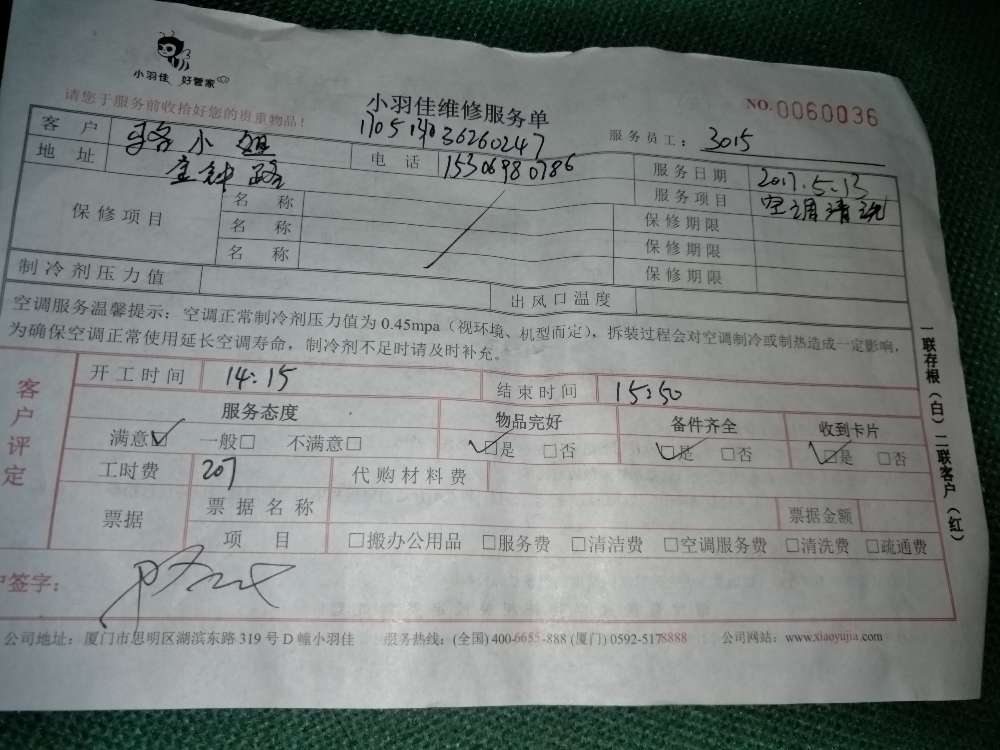 小羽佳 好管家
请您于服务前收拾好您的贵重物品！
小羽佳维修服务单
NO. 0060036
170514036260247
服务员工： 3015
客户 骆小姐 电话 15306980786 服务日期 2017.5.13
地址 金钟路 服务项目 空调清洗
保修项目 名称 保修期限
名称 保修期限
名称 保修期限
制冷剂压力值 出风口温度
空调服务温馨提示：空调正常制冷剂压力值为0.45mpa（视环境、机型而定），拆装过程会对空调制冷或制热造成一定影响，
为确保空调正常使用延长空调寿命，制冷剂不足时请及时补充。
客户评定
开工时间 14:15 结束时间 15:50
服务态度 物品完好 备件齐全 收到卡片
满意☑ 一般□ 不满意□ ☑是 □否 ☑是 □否 ☑是 □否
工时费 207 代购材料费
票据 票据名称 票据金额
项目 □搬办公用品 □服务费 □清洁费 □空调服务费 □清洗费 □疏通费
户签字：
公司地址：厦门市思明区湖滨东路319号D幢小羽佳 服务热线：(全国)400-6685-888 (厦门) 0592-5178888 公司网站：www.xiaoyujia.com
一联存根（白）二联客户（红）